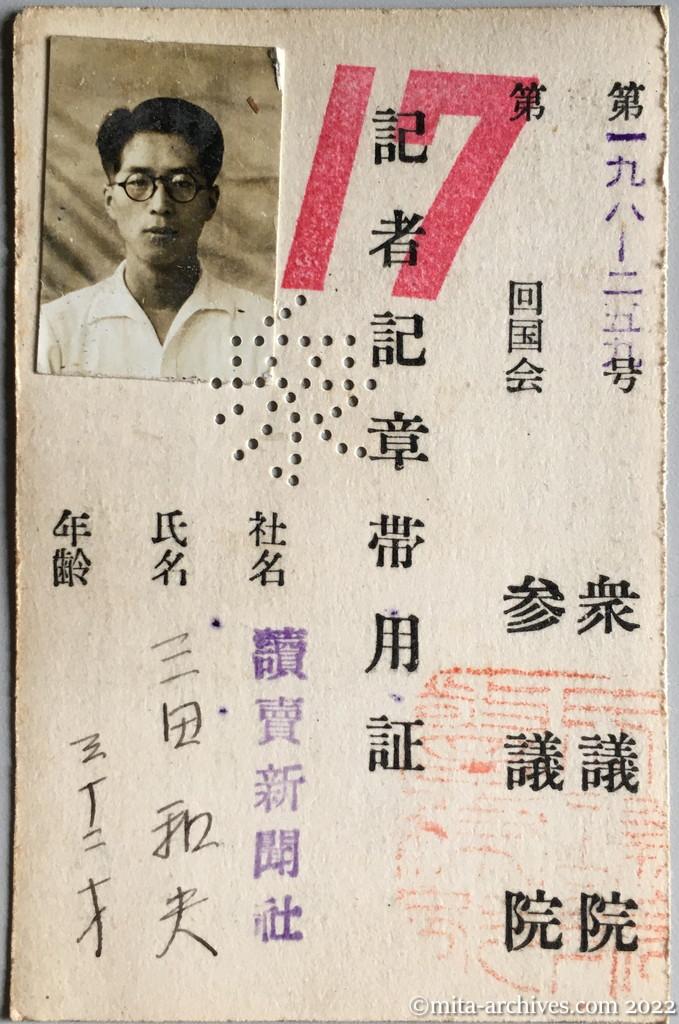 第一九八－二五九号
第17回国会
衆議院
参議院
記者記章帯用証
社名 讀賣新聞社
氏名 三田和夫
年齢 三十二才
©mita-archives.com 2022